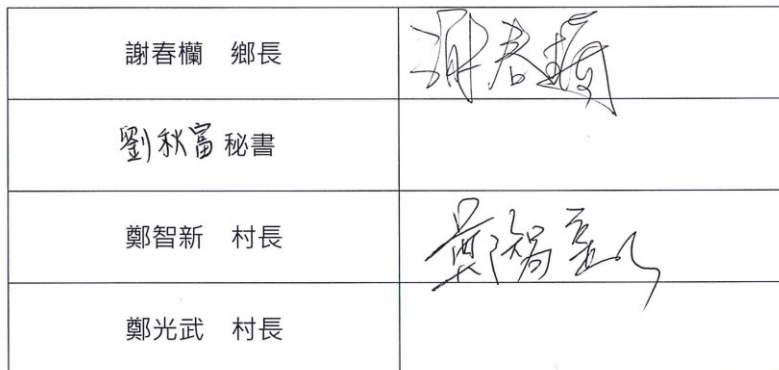 謝春欗　鄉長
謝春欗
劉秋富秘書
鄭智新　村長
鄭智新
鄭光武　村長